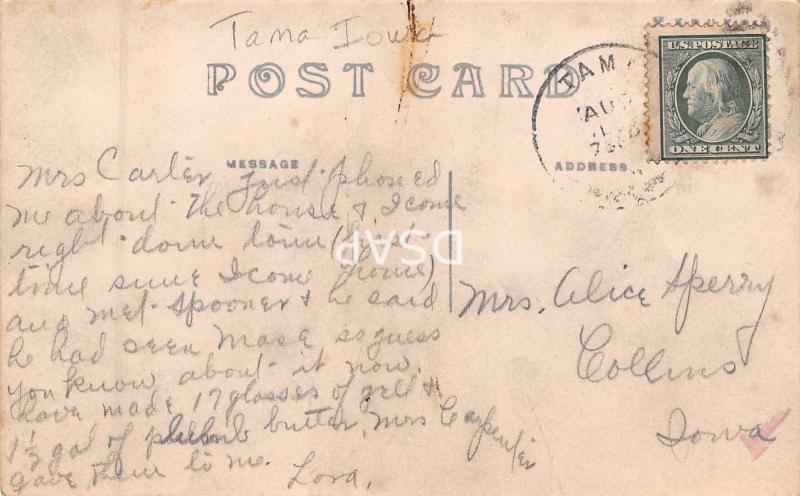 Tama Iowa
POST CARD
TAMA
AUG
U.S. POSTAGE
ONE CENT
MESSAGE
ADDRESS
Mrs Carter just phoned
me about the house & I come
right down town (first
time since I come home)
and met Spooner & he said
he had seen Mase so guess
you know about it now.
have made 17 glasses of jell &
1½ gal of plum butter, Mrs Carpenter
gave them to me.
Lora.
Mrs. Alice Sperry
Collins
Iowa
DSAP